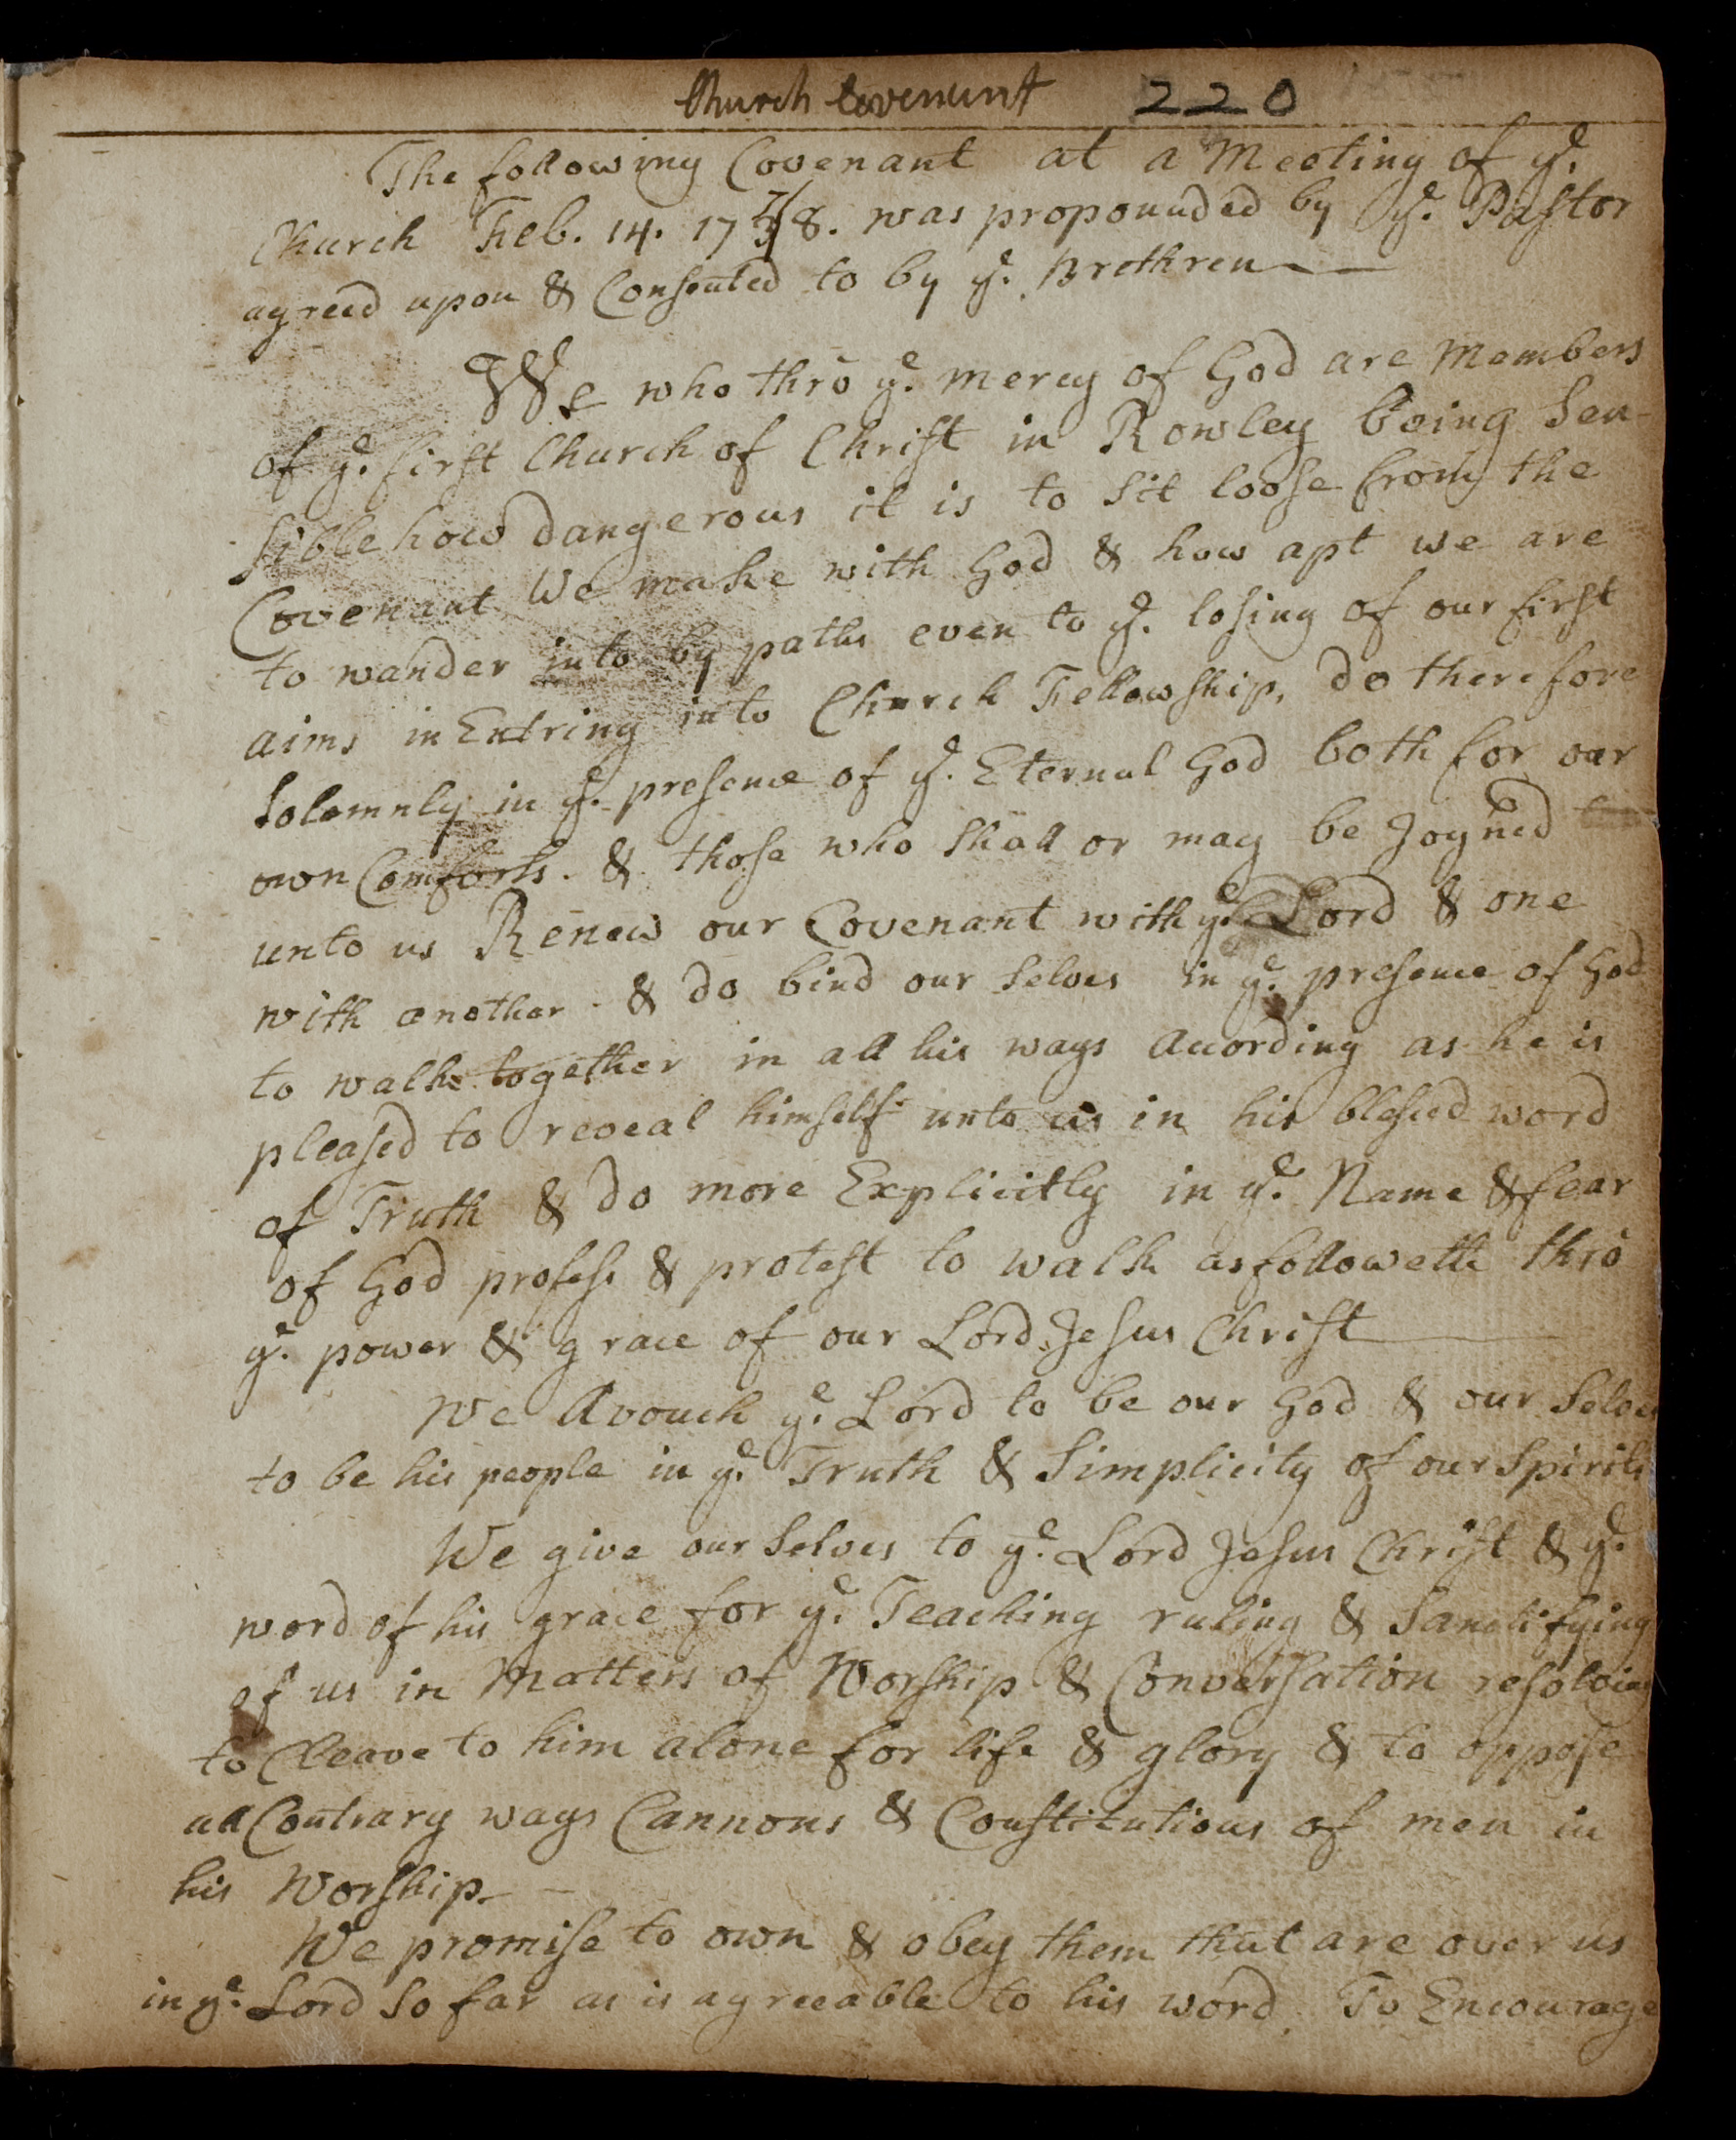 Church Covenant 220
The following Covenant at a Meeting of ye.
Church Feb. 14. 17 7/8. was propounded by ye. Pastor
agreed upon & Consented to by ye. Brethren
We who thrò ye. mercy of God are Members
of ye. first Church of Christ in Rowley being Sen-
sible how dangerous it is to Sit loose from the
Covenant We make with God & how apt we are
to wander into by paths even to ye. losing of our first
aims in Entring into Church Fellowship, do therefore
Solemnly in ye. presence of ye. Eternal God both for our
own Comforts. & those who Shall or may be Joyned
unto us Renew our Covenant with ye. Lord & one
with another & do bind our Selves in ye. presence of God
to walk together in all his ways according as he is
pleased to reveal himself unto us in his blessed word
of Truth & do more Explicitly in ye. Name & fear
of God profess & protest to walk as followeth thrò
ye. power & grace of our Lord Jesus Christ
We Avouch ye. Lord to be our God & our Selves
to be his people in ye. Truth & Simplicity of our Spirits
We give our Selves to ye. Lord Jesus Christ & ye.
word of his grace for ye. Teaching ruling & Sanctifying
of us in Matters of Worship & Conversation resolving
to Cleave to him alone for life & glory & to oppose
all Contrary ways Cannons & Constitutions of men in
his Worship
We promise to own & obey them that are over us
in ye. Lord So far as is agreeable to his word. To Encourage